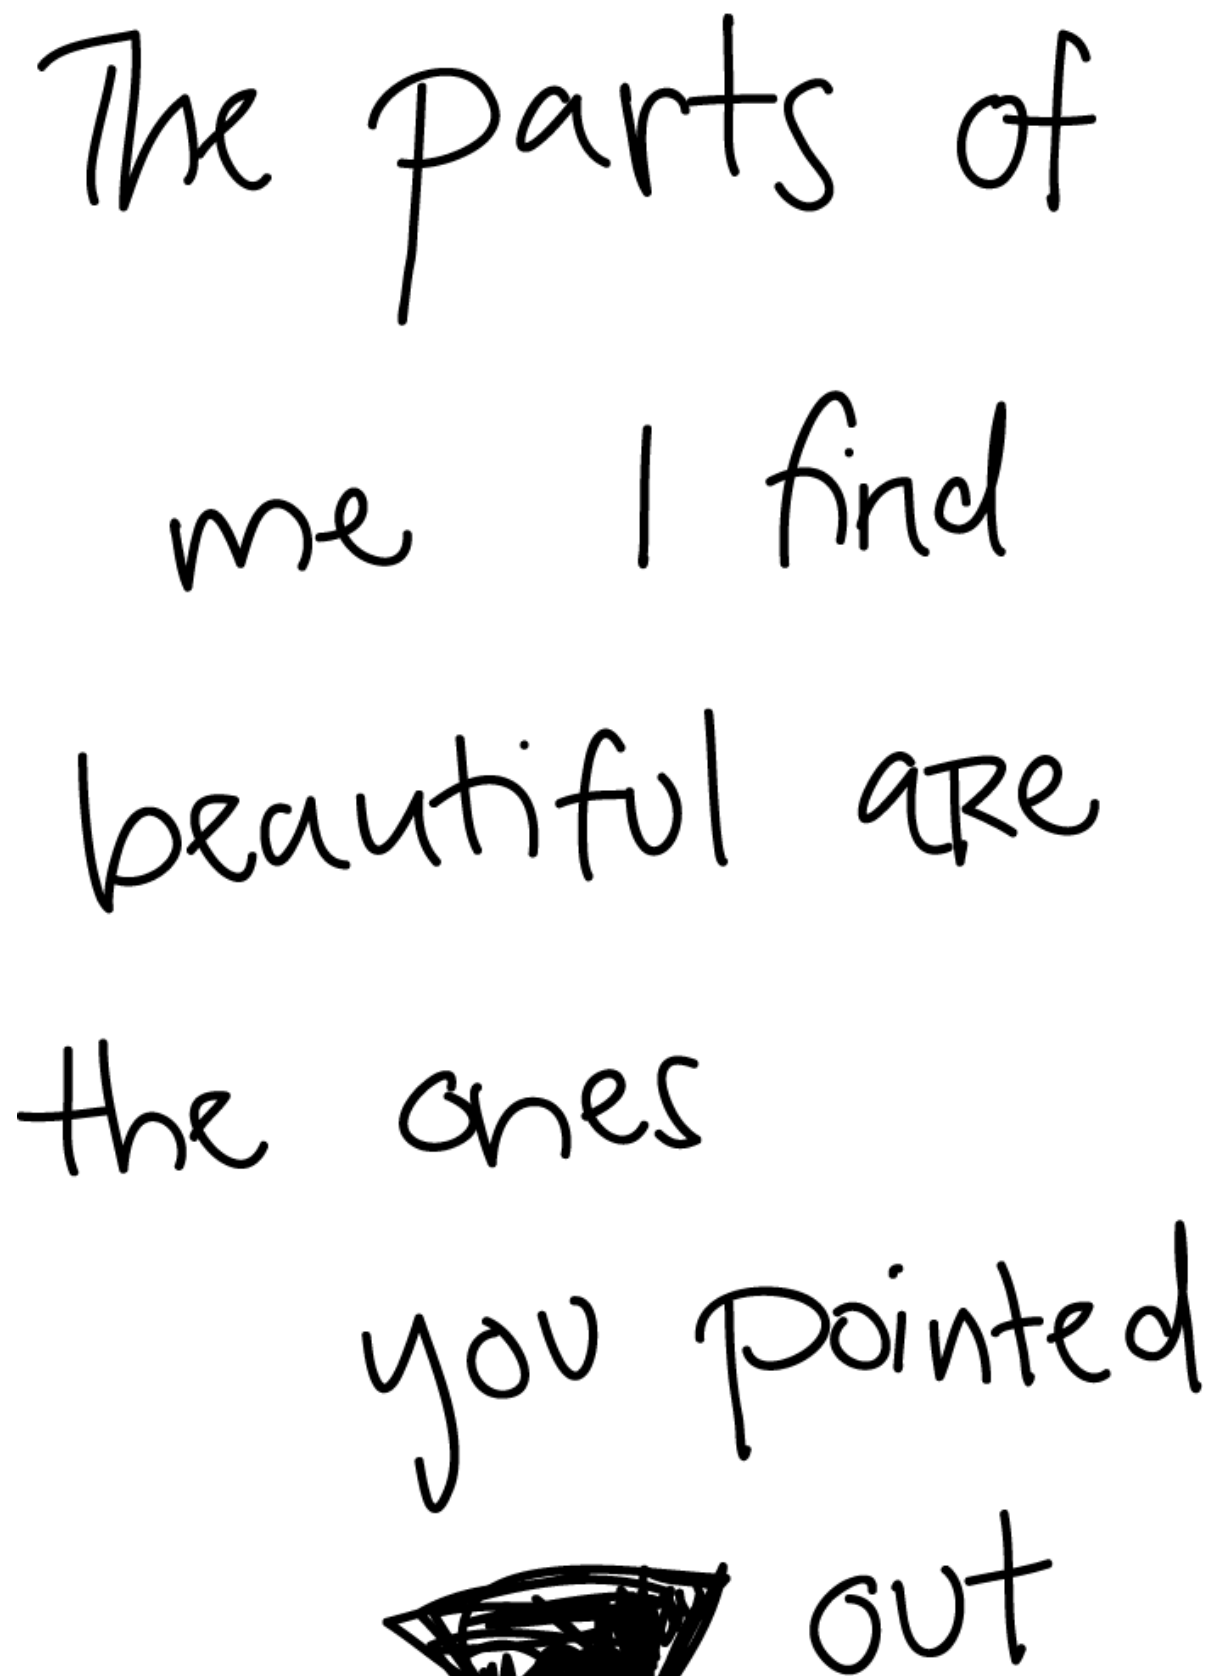 The parts of
me I find
beautiful are
the ones
you pointed
out